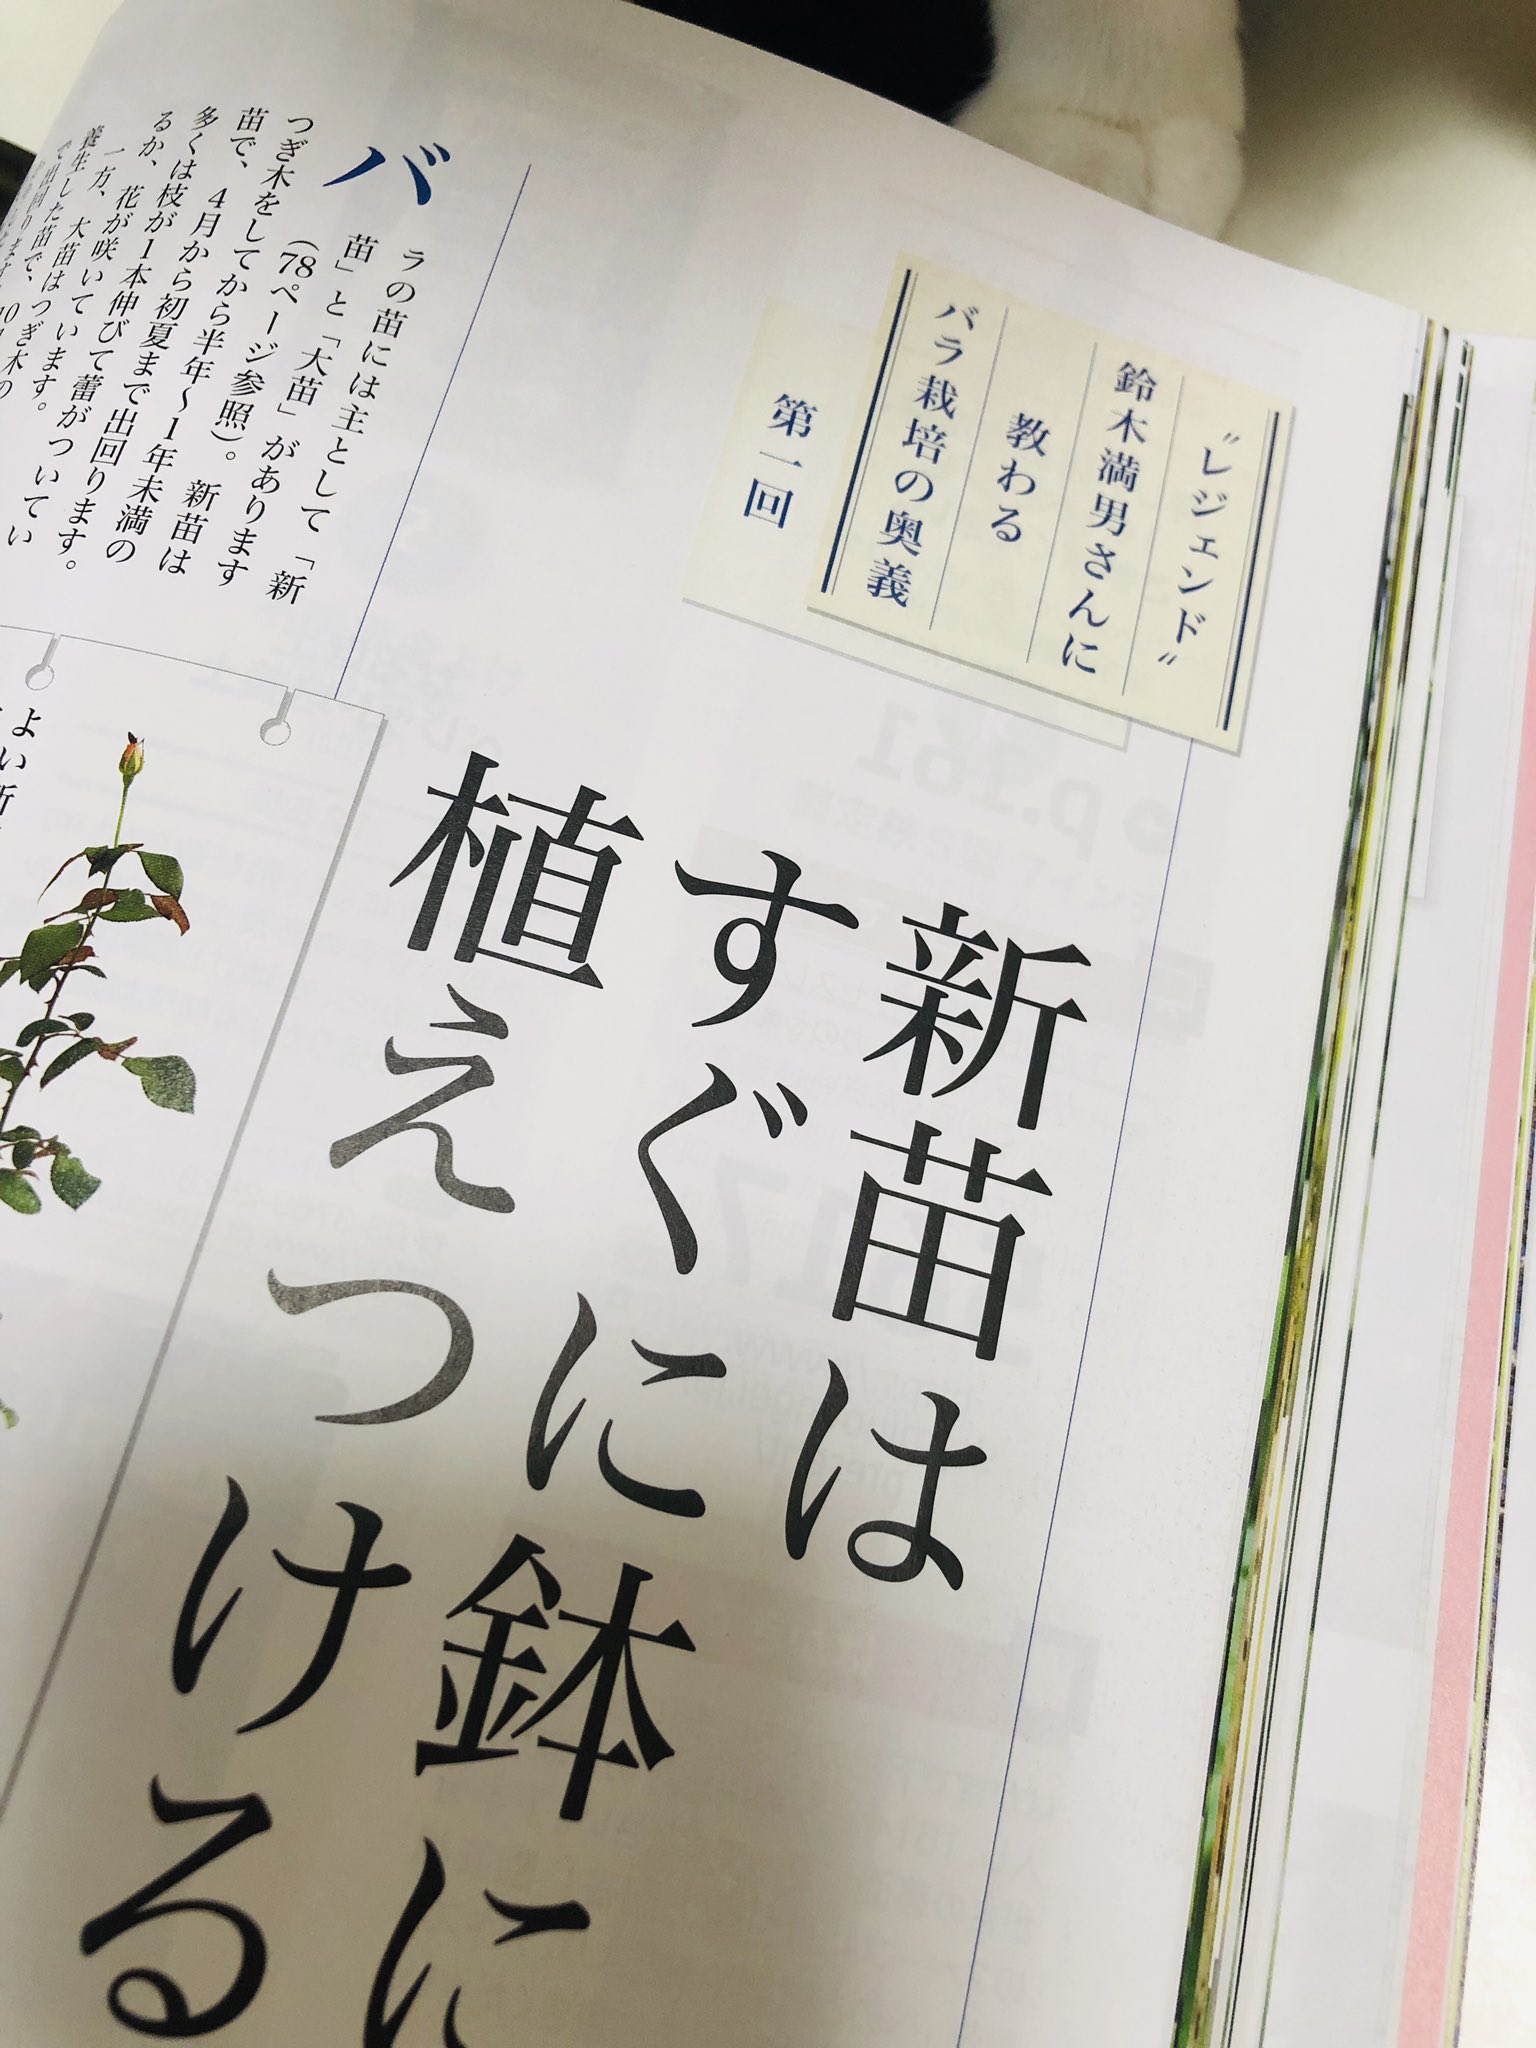 〝レジェンド〟
鈴木満男さんに
教わる
バラ栽培の奥義
第一回
新苗は
すぐに鉢に
植えつける
バラの苗には主として「新
苗」と「大苗」があります
(78ページ参照)。新苗は
つぎ木をしてから半年〜1年未満の
苗で、4月から初夏まで出回ります。
多くは枝が1本伸びて蕾がついてい
るか、花が咲いています。
一方、大苗はつぎ木の
養生した苗で、
で出回ります
よい新